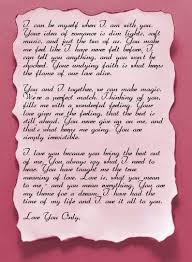 I can be myself when I am with you.
Your idea of romance is dim lights, soft
music, and just the two of us. You make
me feel like I have never felt before, I
can tell you anything, and you won't be
shocked. Your undying faith is what keeps
the flame of our love alive.
You and I together, we can make magic.
We're a perfect match. Thinking of you,
fills me with a wonderful feeling. Your
love gives me the feeling, that the best
is still ahead. You never give up on me, and
that's what keeps me going. You are
simply irresistible.
I love you because you bring the best out
of me. You always say what I need to
hear. You have taught me the true
meaning of love. Love is, what you mean
to me - and you mean everything. You are
my theme for a dream. I have had the
time of my life and I owe it all to you.
Love You Only.